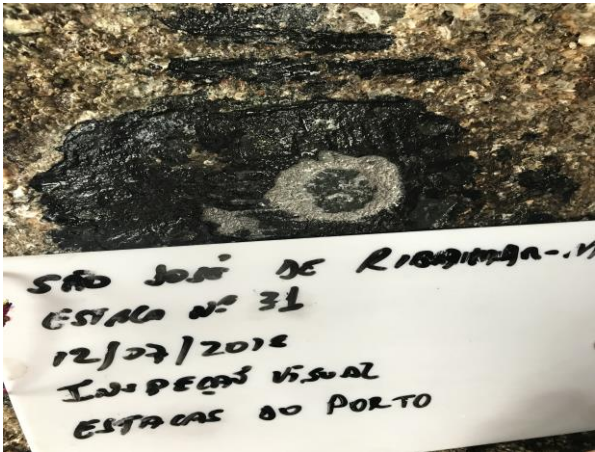 SÃO JOSÉ DE RIBAMAR-M
ESTACA Nº 31
12/07/2018
INSPEÇÃO VISUAL
ESTACAS DO PORTO